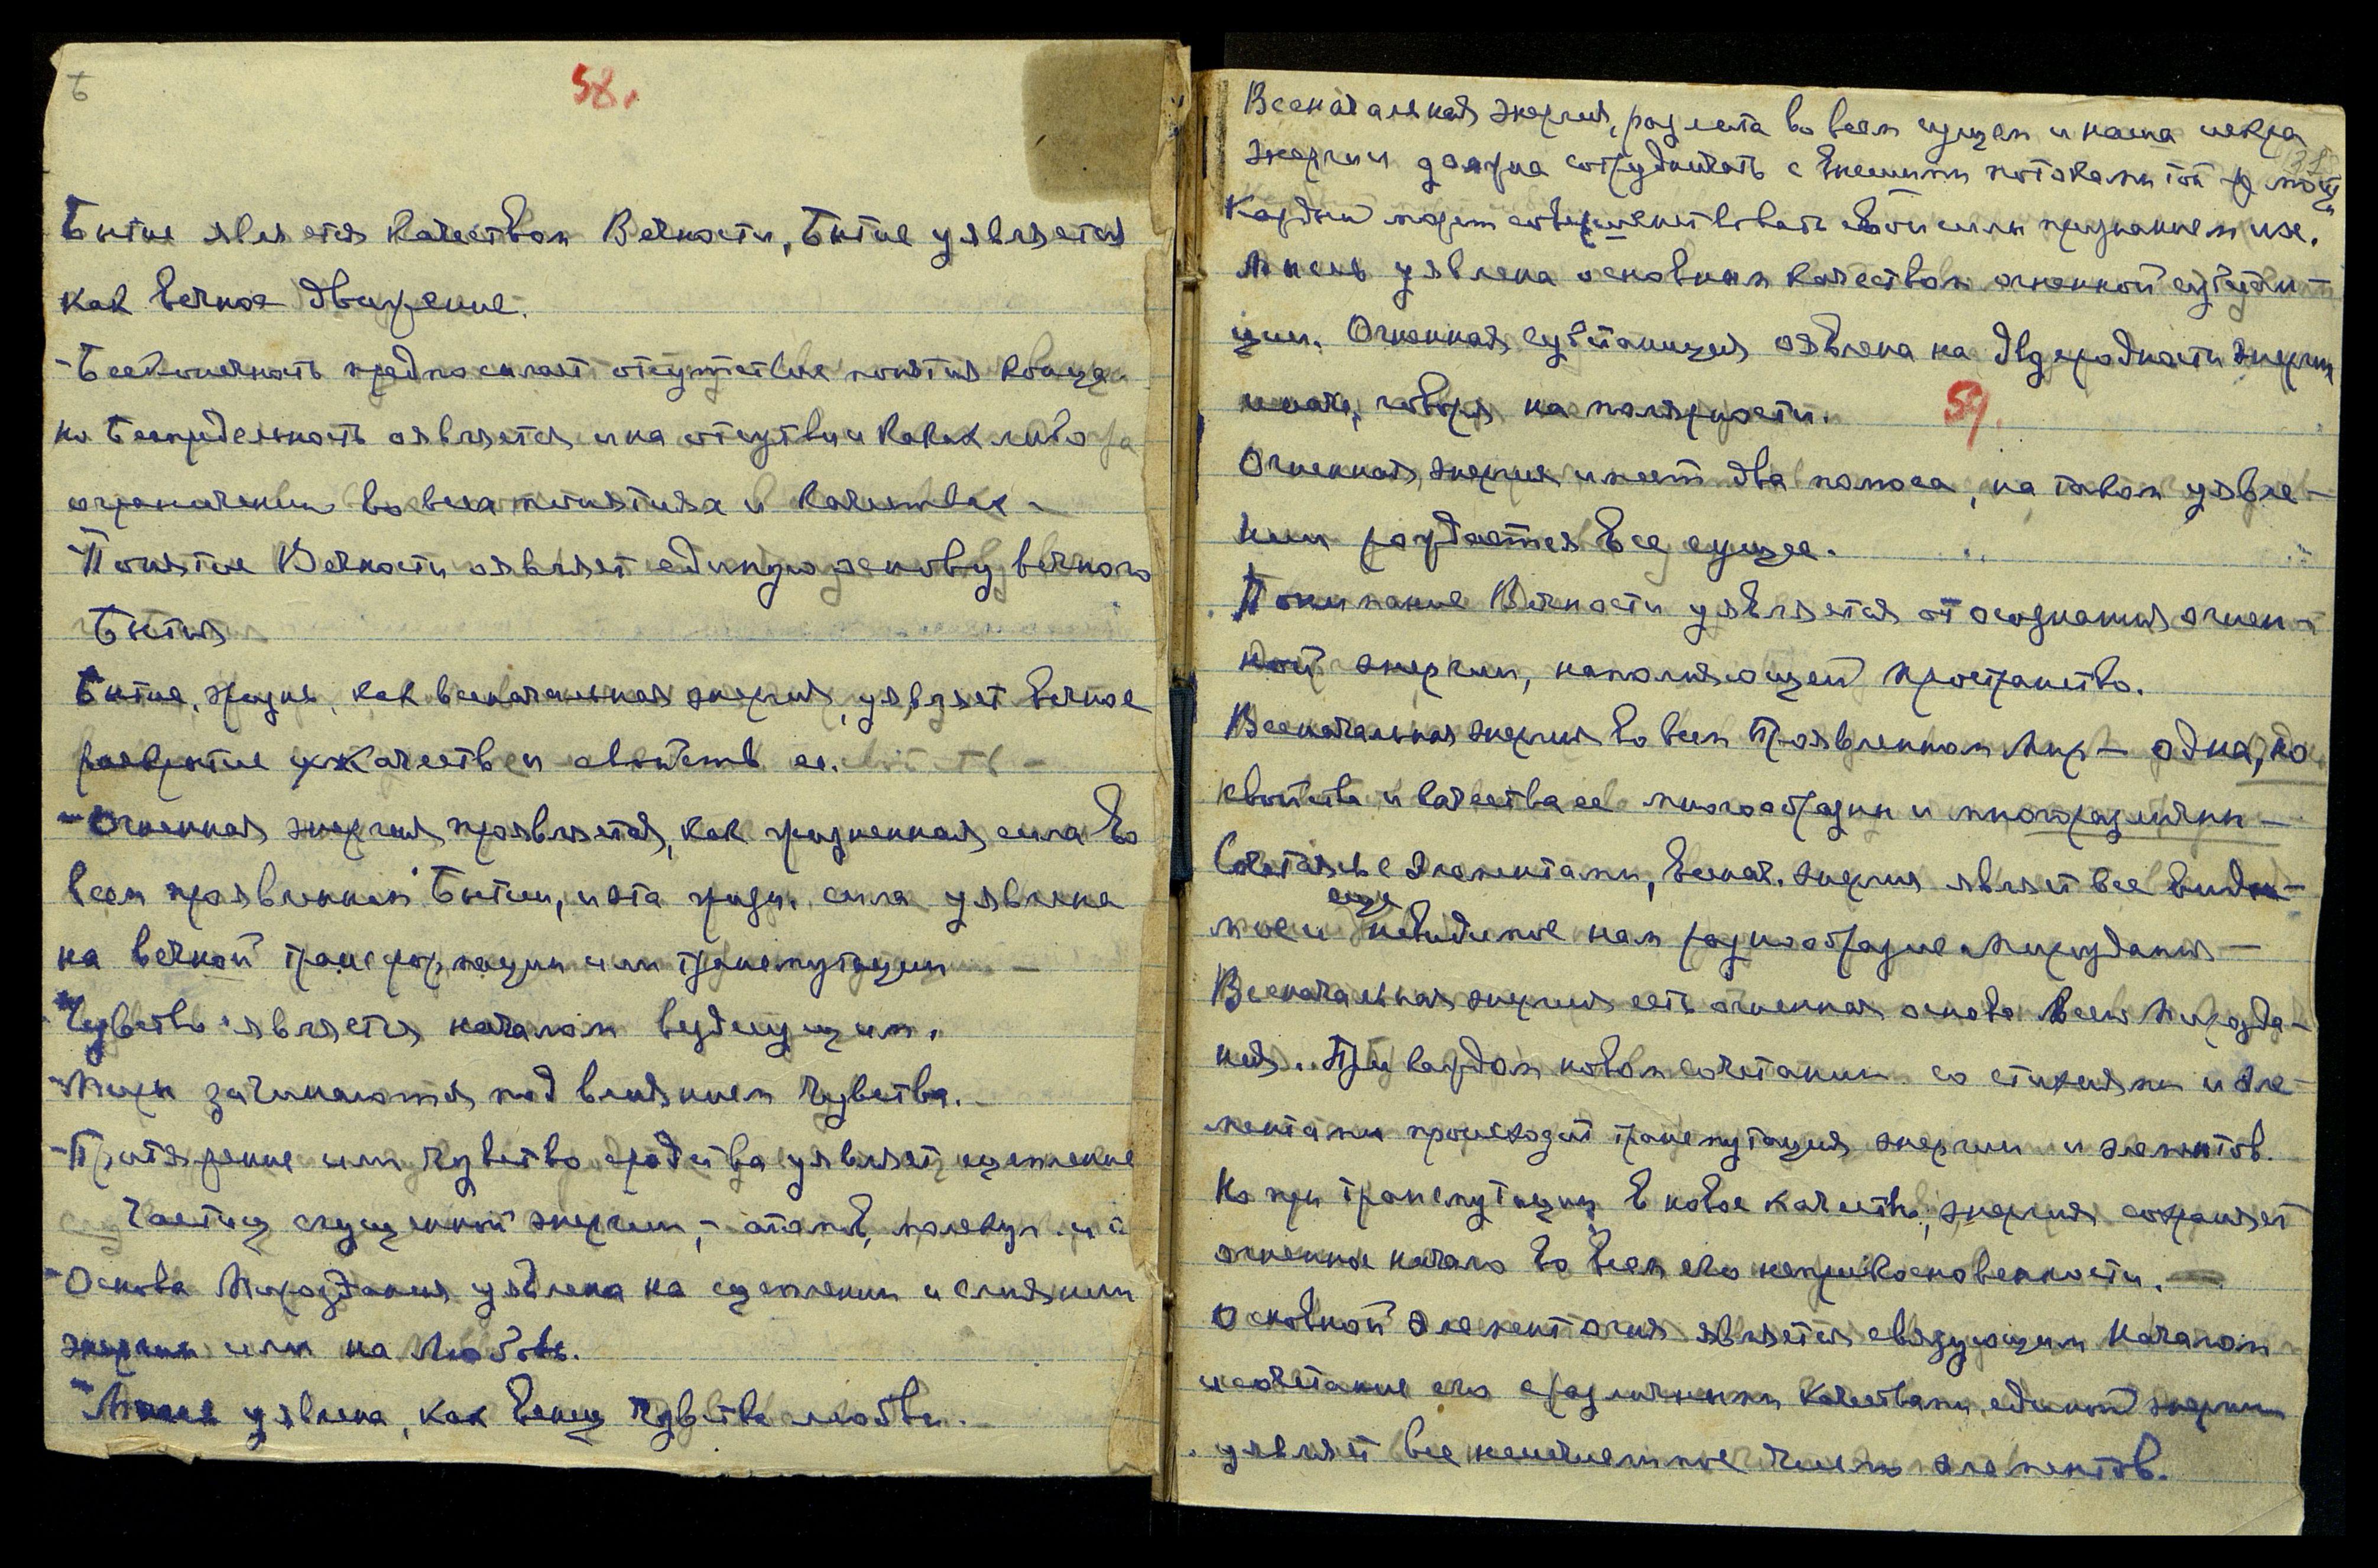 58.
Бытие является качеством Вечности, Бытие уявляется
как вечное движение.
- Бесконечность предпосылает отсутствие понятия конца
но Беспредельность оявляется и на отсутвии каких либо
ограничений во всех понятиях и качествах -
- Понятие Вечности оявляет единую основу вечного
Бытия
Бытие, жизнь, как всеначальная энергия, уявляет вечное
развитие качеств и свойств ее.
- Огненная энергия проявляется, как жизненная сила во
всем проявленном Бытии, и эта жизн. сила уявлена
на вечной трансформации или трансмутации -
- Чувство является началом ведущим.
- Миры зачинаются под влиянием чувства. -
- Притяжение или чувство сродства уявляет сцепление
частиц сгущенной энергии, - атомов, молекул и
- Основа Мироздания уявлена на сцеплении и слиянии
энергии или на Любовь.
- Мысль уявлена, как венец чувства любви. -
Всеначальная энергия, разлита во всем сущем и наша искра
энергии должна сотрудничать с внешними потоками той же мощи
Каждый может совершенствовать свои силы признанием их.
Мысль уявлена основным качеством огненной субстан-
ции. Огненная субстанция оявлена на двуродности энергии
иначе, говоря на полярности.
59.
Огненная, энергия имеет два полюса, на таком уявле-
нии рождается все сущее.
Понимание Вечности уявляется от осознания огнен-
ной энергии, наполняющей пространство.
Всеначальная энергия во всем Проявленном Мире - одна, но
свойства и качества ее многообразны и многоразличны -
Сочетаясь с элементами, всенач. энергия являет все види-
мое и еще невидимое нам разнообразие Мироздания -
Всеначальная энергия есть огненная основа всего Мирозда-
ния. При каждом новом сочетании со стихиями и эле-
ментами происходит трансмутация энергии и элементов.
Но при трансмутации в новое качество, энергия сохраняет
огненное начало во всей его неприкосновенности. -
Основной элемент огня является связующим началом
и сочетание его с различными качествами единой энергии
уявляет все неисчислимое число элементов.